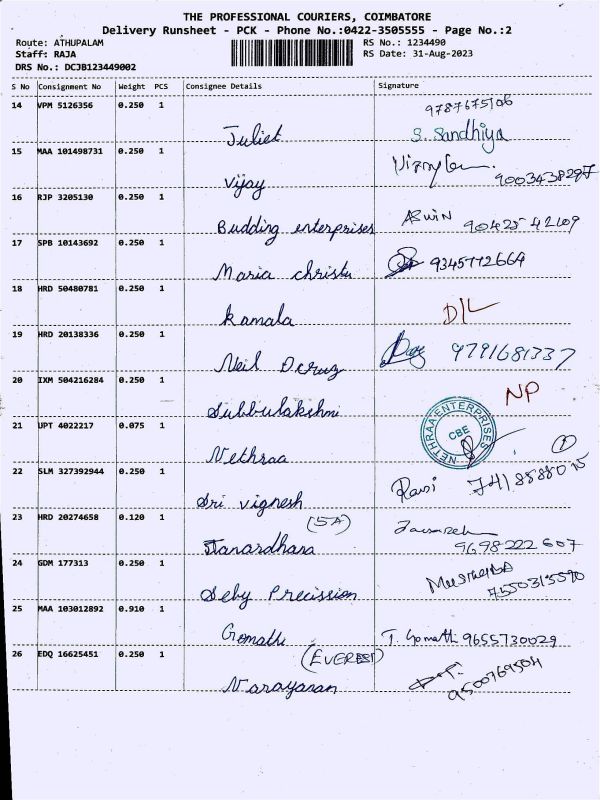 THE PROFESSIONAL COURIERS, COIMBATORE
Delivery Runsheet - PCK - Phone No.:0422-3505555 - Page No.:2
Route: ATHUPALAM RS No.: 1234490
Staff: RAJA RS Date: 31-Aug-2023
DRS No.: DCJB123449002
S No Consignment No Weight PCS Consignee Details Signature
14 VPM 5126356 0.250 1 9787675106
Juliet S. Sandhiya
15 MAA 101498731 0.250 1
Vijay 9003438297
16 RJP 3205130 0.250 1
Budding enterprises ASWIN 90425 42109
17 SPB 10143692 0.250 1
Maria christu 9345772664
18 HRD 50480781 0.250 1
kamala D/L
19 HRD 20138336 0.250 1
Neil Dcruz 9791681337
20 IXM 504216284 0.250 1 NP
Subbulakshmi
21 UPT 4022217 0.075 1 NETHRAA ENTERPRISES CBE
Nethraa
22 SLM 327392944 0.250 1
Sri vignesh Ravi
23 HRD 20274658 0.120 1 (5A)
9698222607
24 GDM 177313 0.250 1
Seby Precission 7550315590
25 MAA 103012892 0.910 1
Gomathi T. Gomathi 9655730029
26 EDQ 16625451 0.250 1 (EVEREST)
Narayanan 9500769504